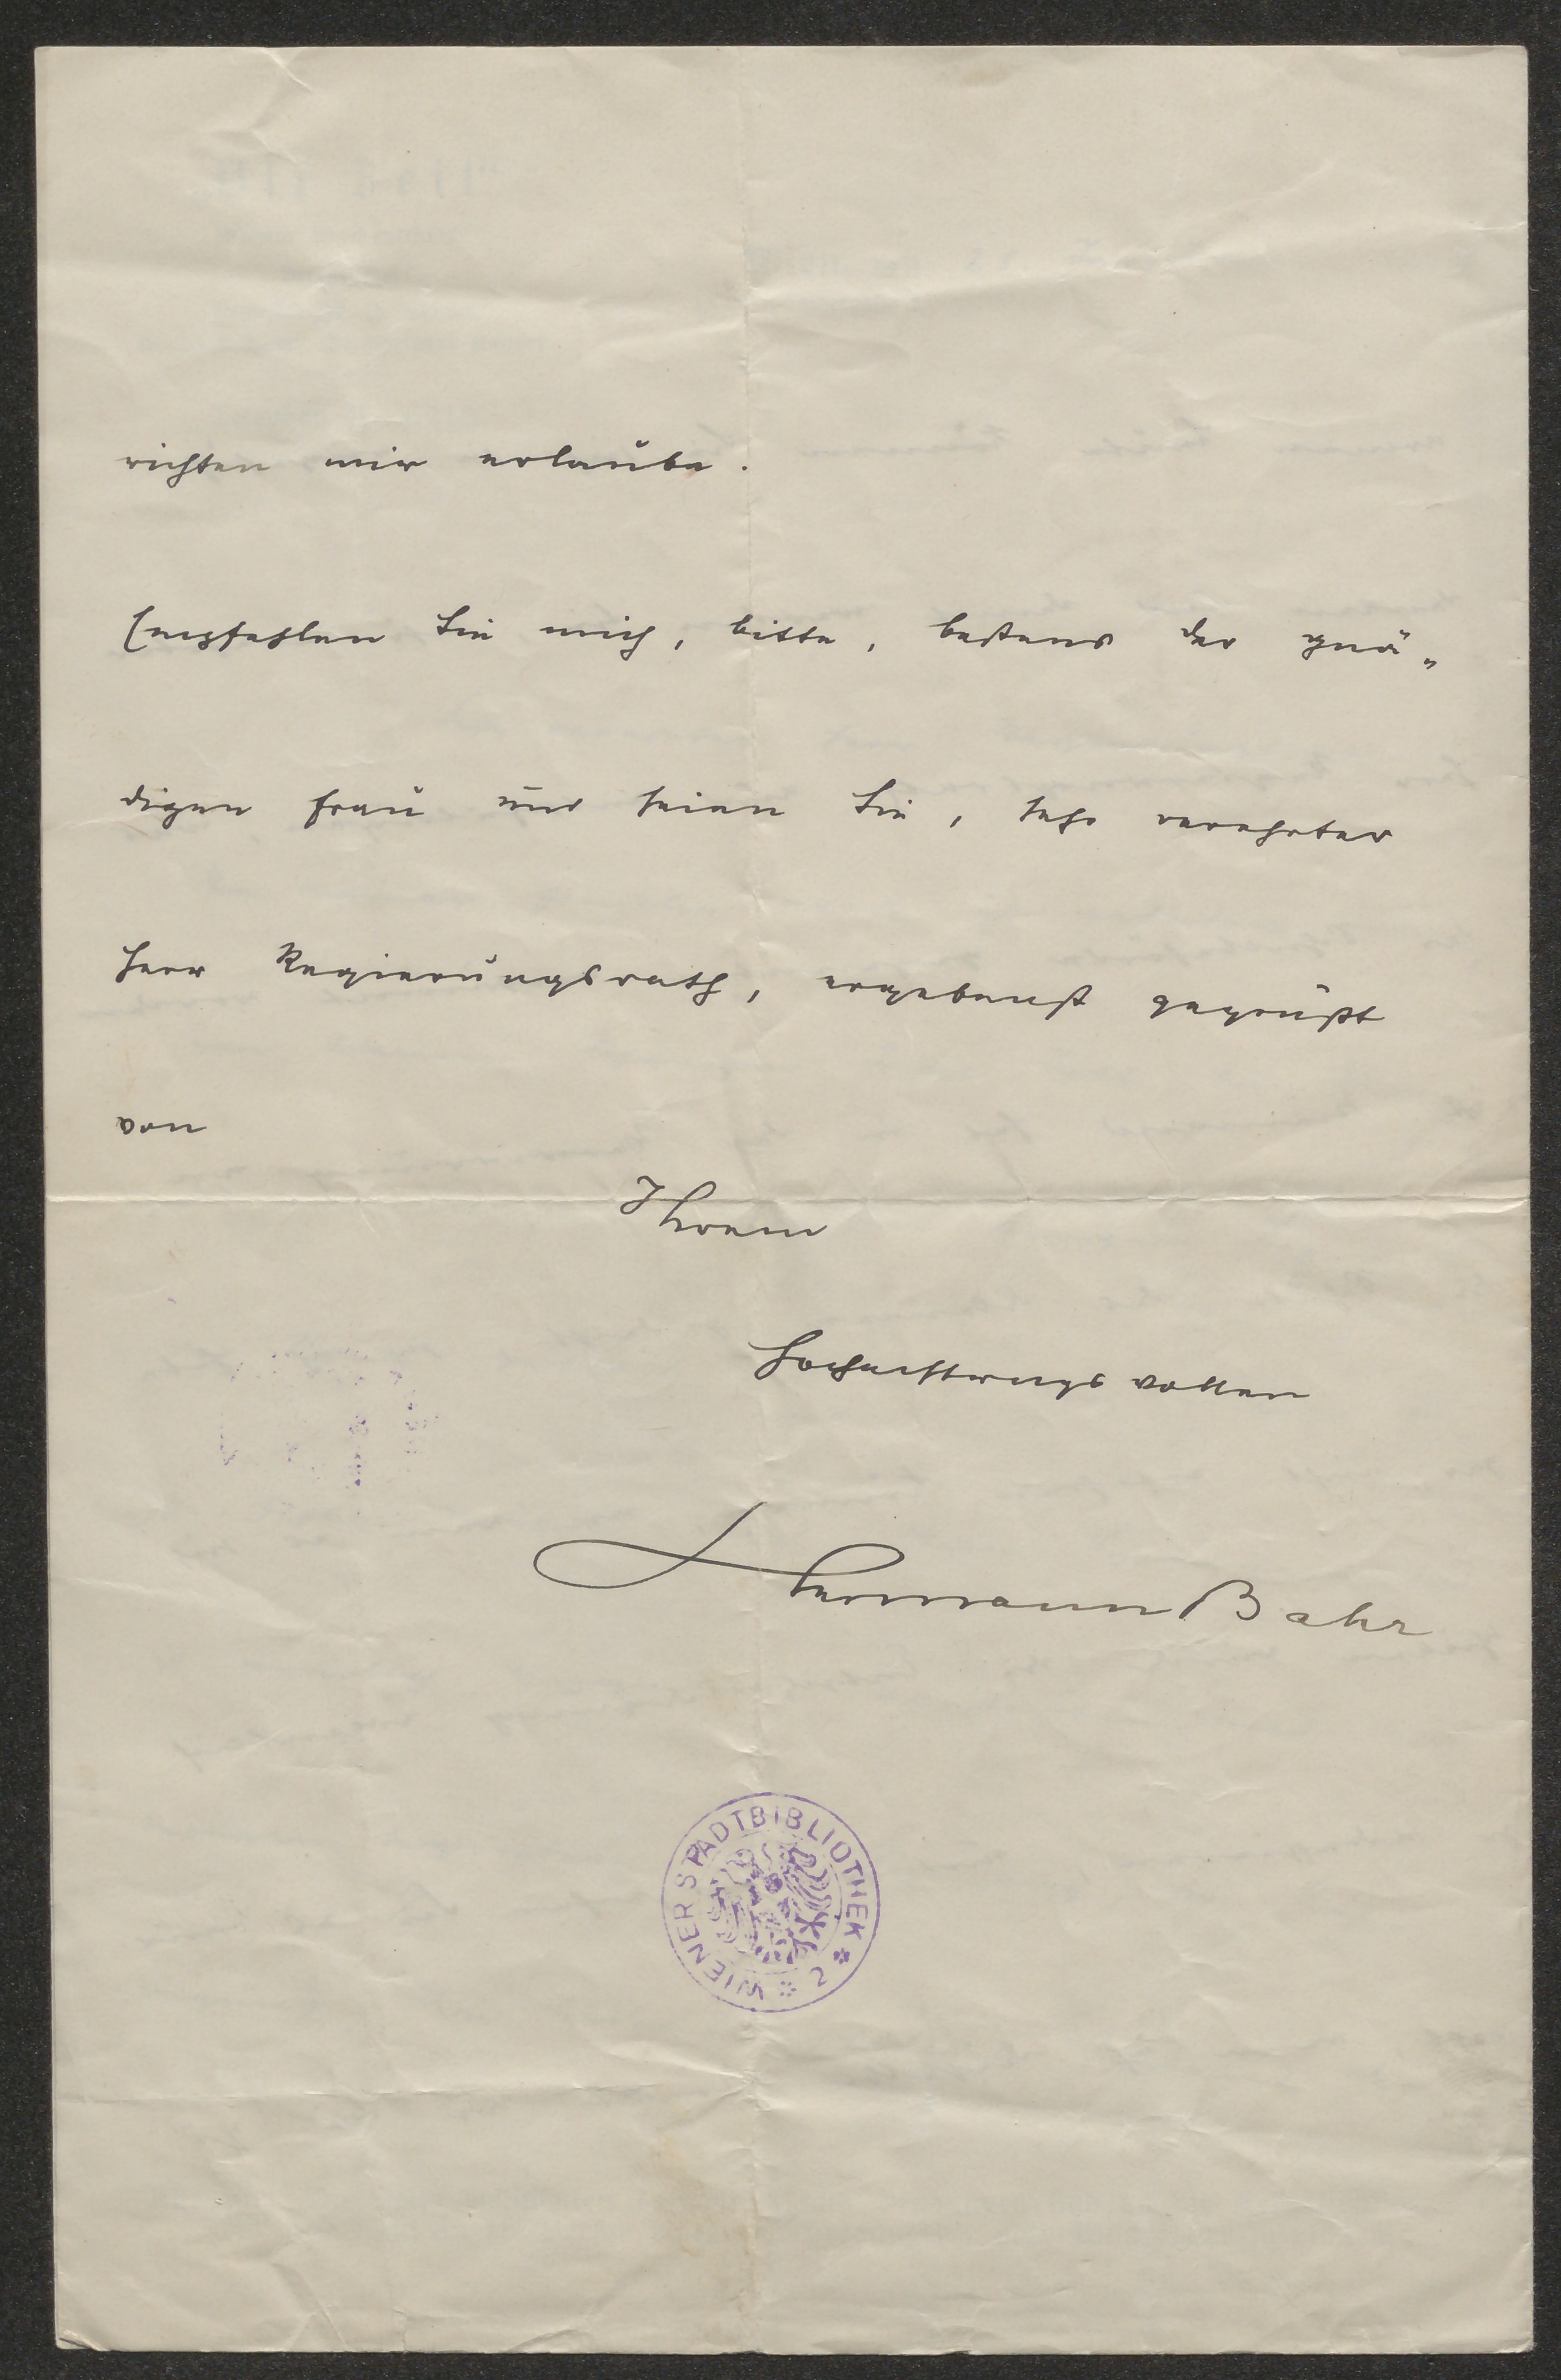 richten mir erlaube.
Empfehlen Sie mich, bitte, bestens der gnä„
digen Frau und seien Sie, sehr verehrter
Herr Regierungsrath, ergebenst gegrüßt
von
Ihrem
hochachtungsvollen
Hermann Bahr
WIENER STADTBIBLIOTHEK * 2 *